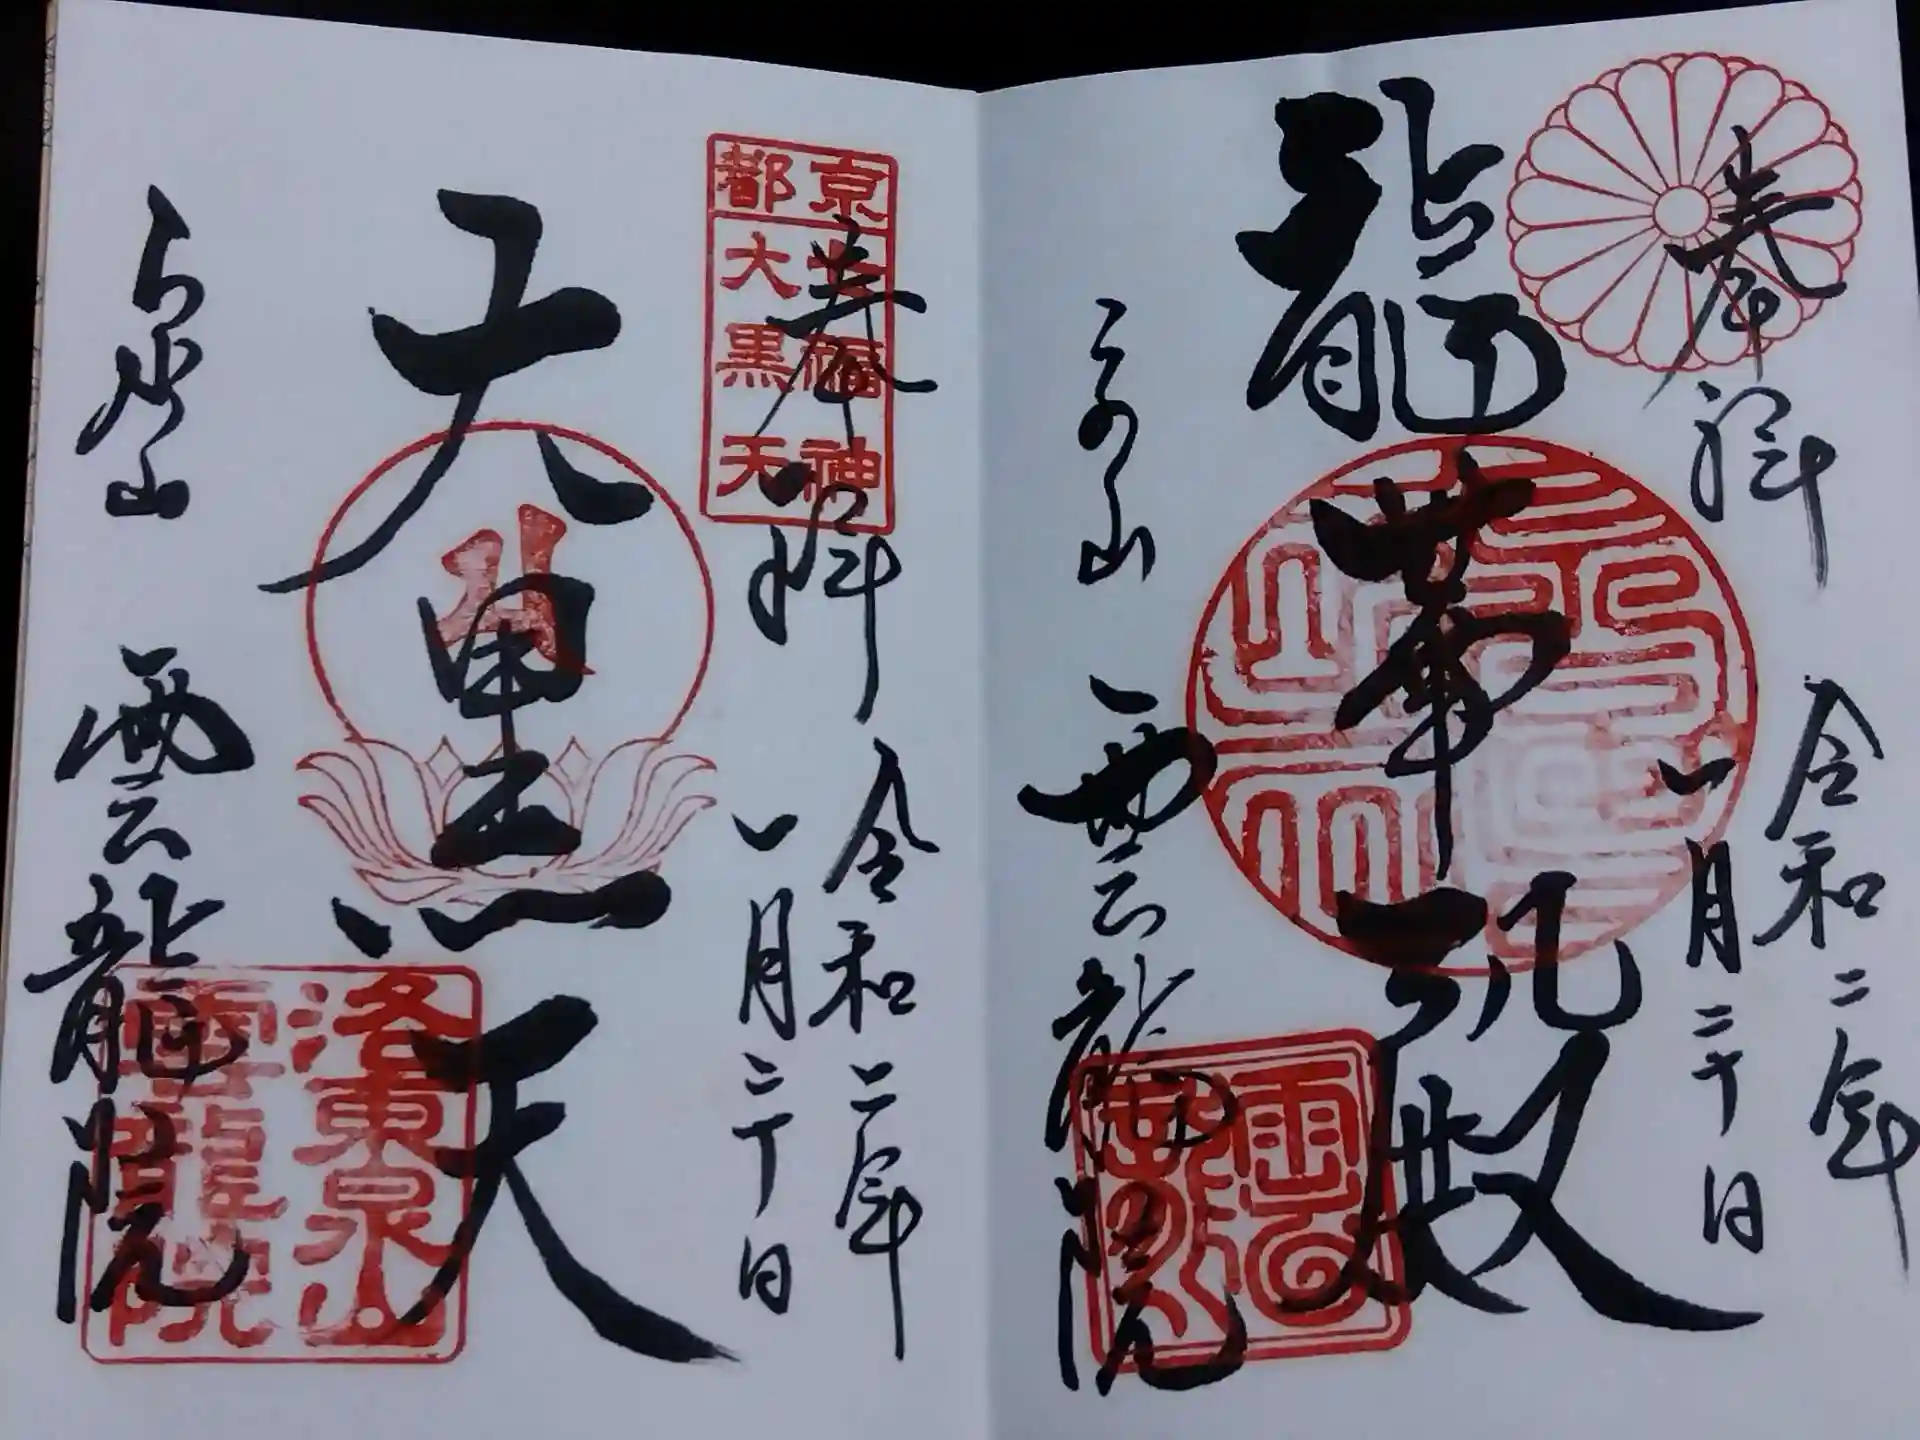 奉拝
令和二年
一月二十日
龍華殿
泉山
雲龍院
奉拝
京都
七福神
大黒天
令和二年
一月二十日
大黒天
泉山
雲龍院
洛東泉山
雲龍院